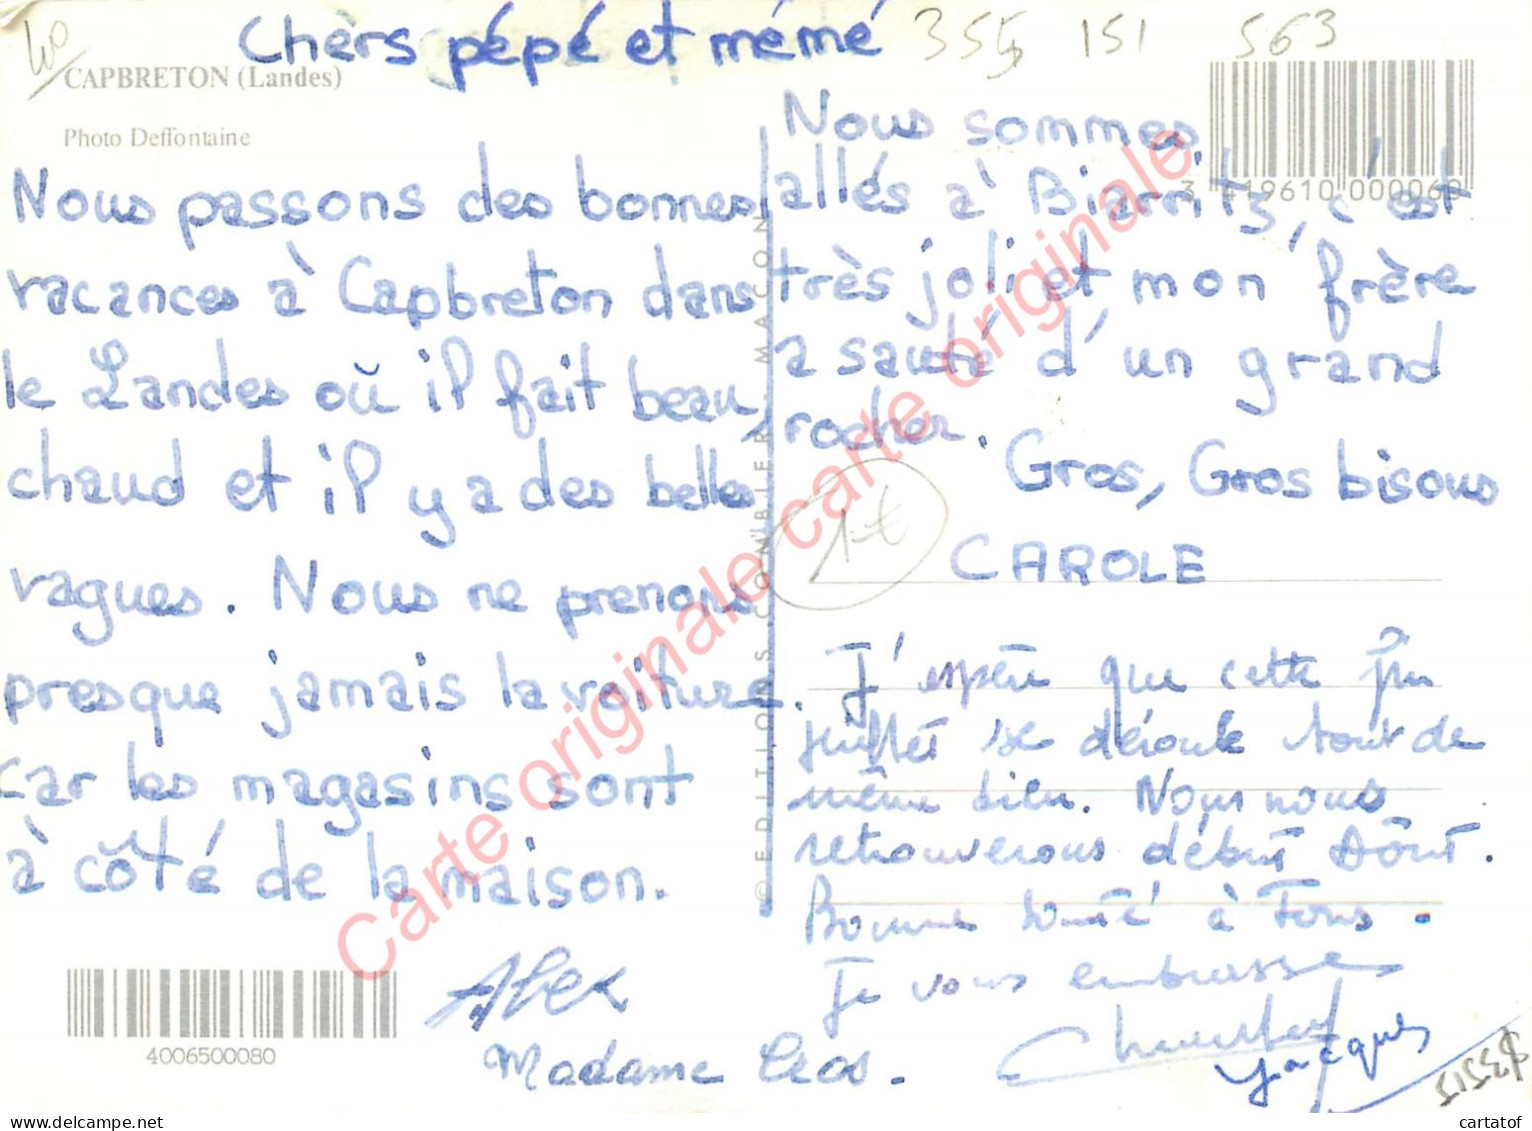 40
Chèrs pépé et mémé
355 151 563
CAPBRETON (Landes)
Photo Deffontaine
Nous passons des bonnes
vacances à Capbreton dans
le Landes où il fait beau,
chaud et il y a des belles
vagues. Nous ne prenons
presque jamais la voiture
car les magasins sont
à côté de la maison.
Alex
Madame Cros.
4006500080
© EDITIONS COMBIER MACON
3 419610 000060
Nous sommes
allés à Biarritz, c'est
très joli et mon frère
a sauté d'un grand
rocher.
Gros, Gros bisous
CAROLE
1 €
J'espère que cette fin
juillet se déroule tout de
même bien. Nous nous
retrouverons début Août.
Bonne santé à Tous.
Je vous embrasse
Jacques
Carte originale carte originale
delcampe.net
cartatof